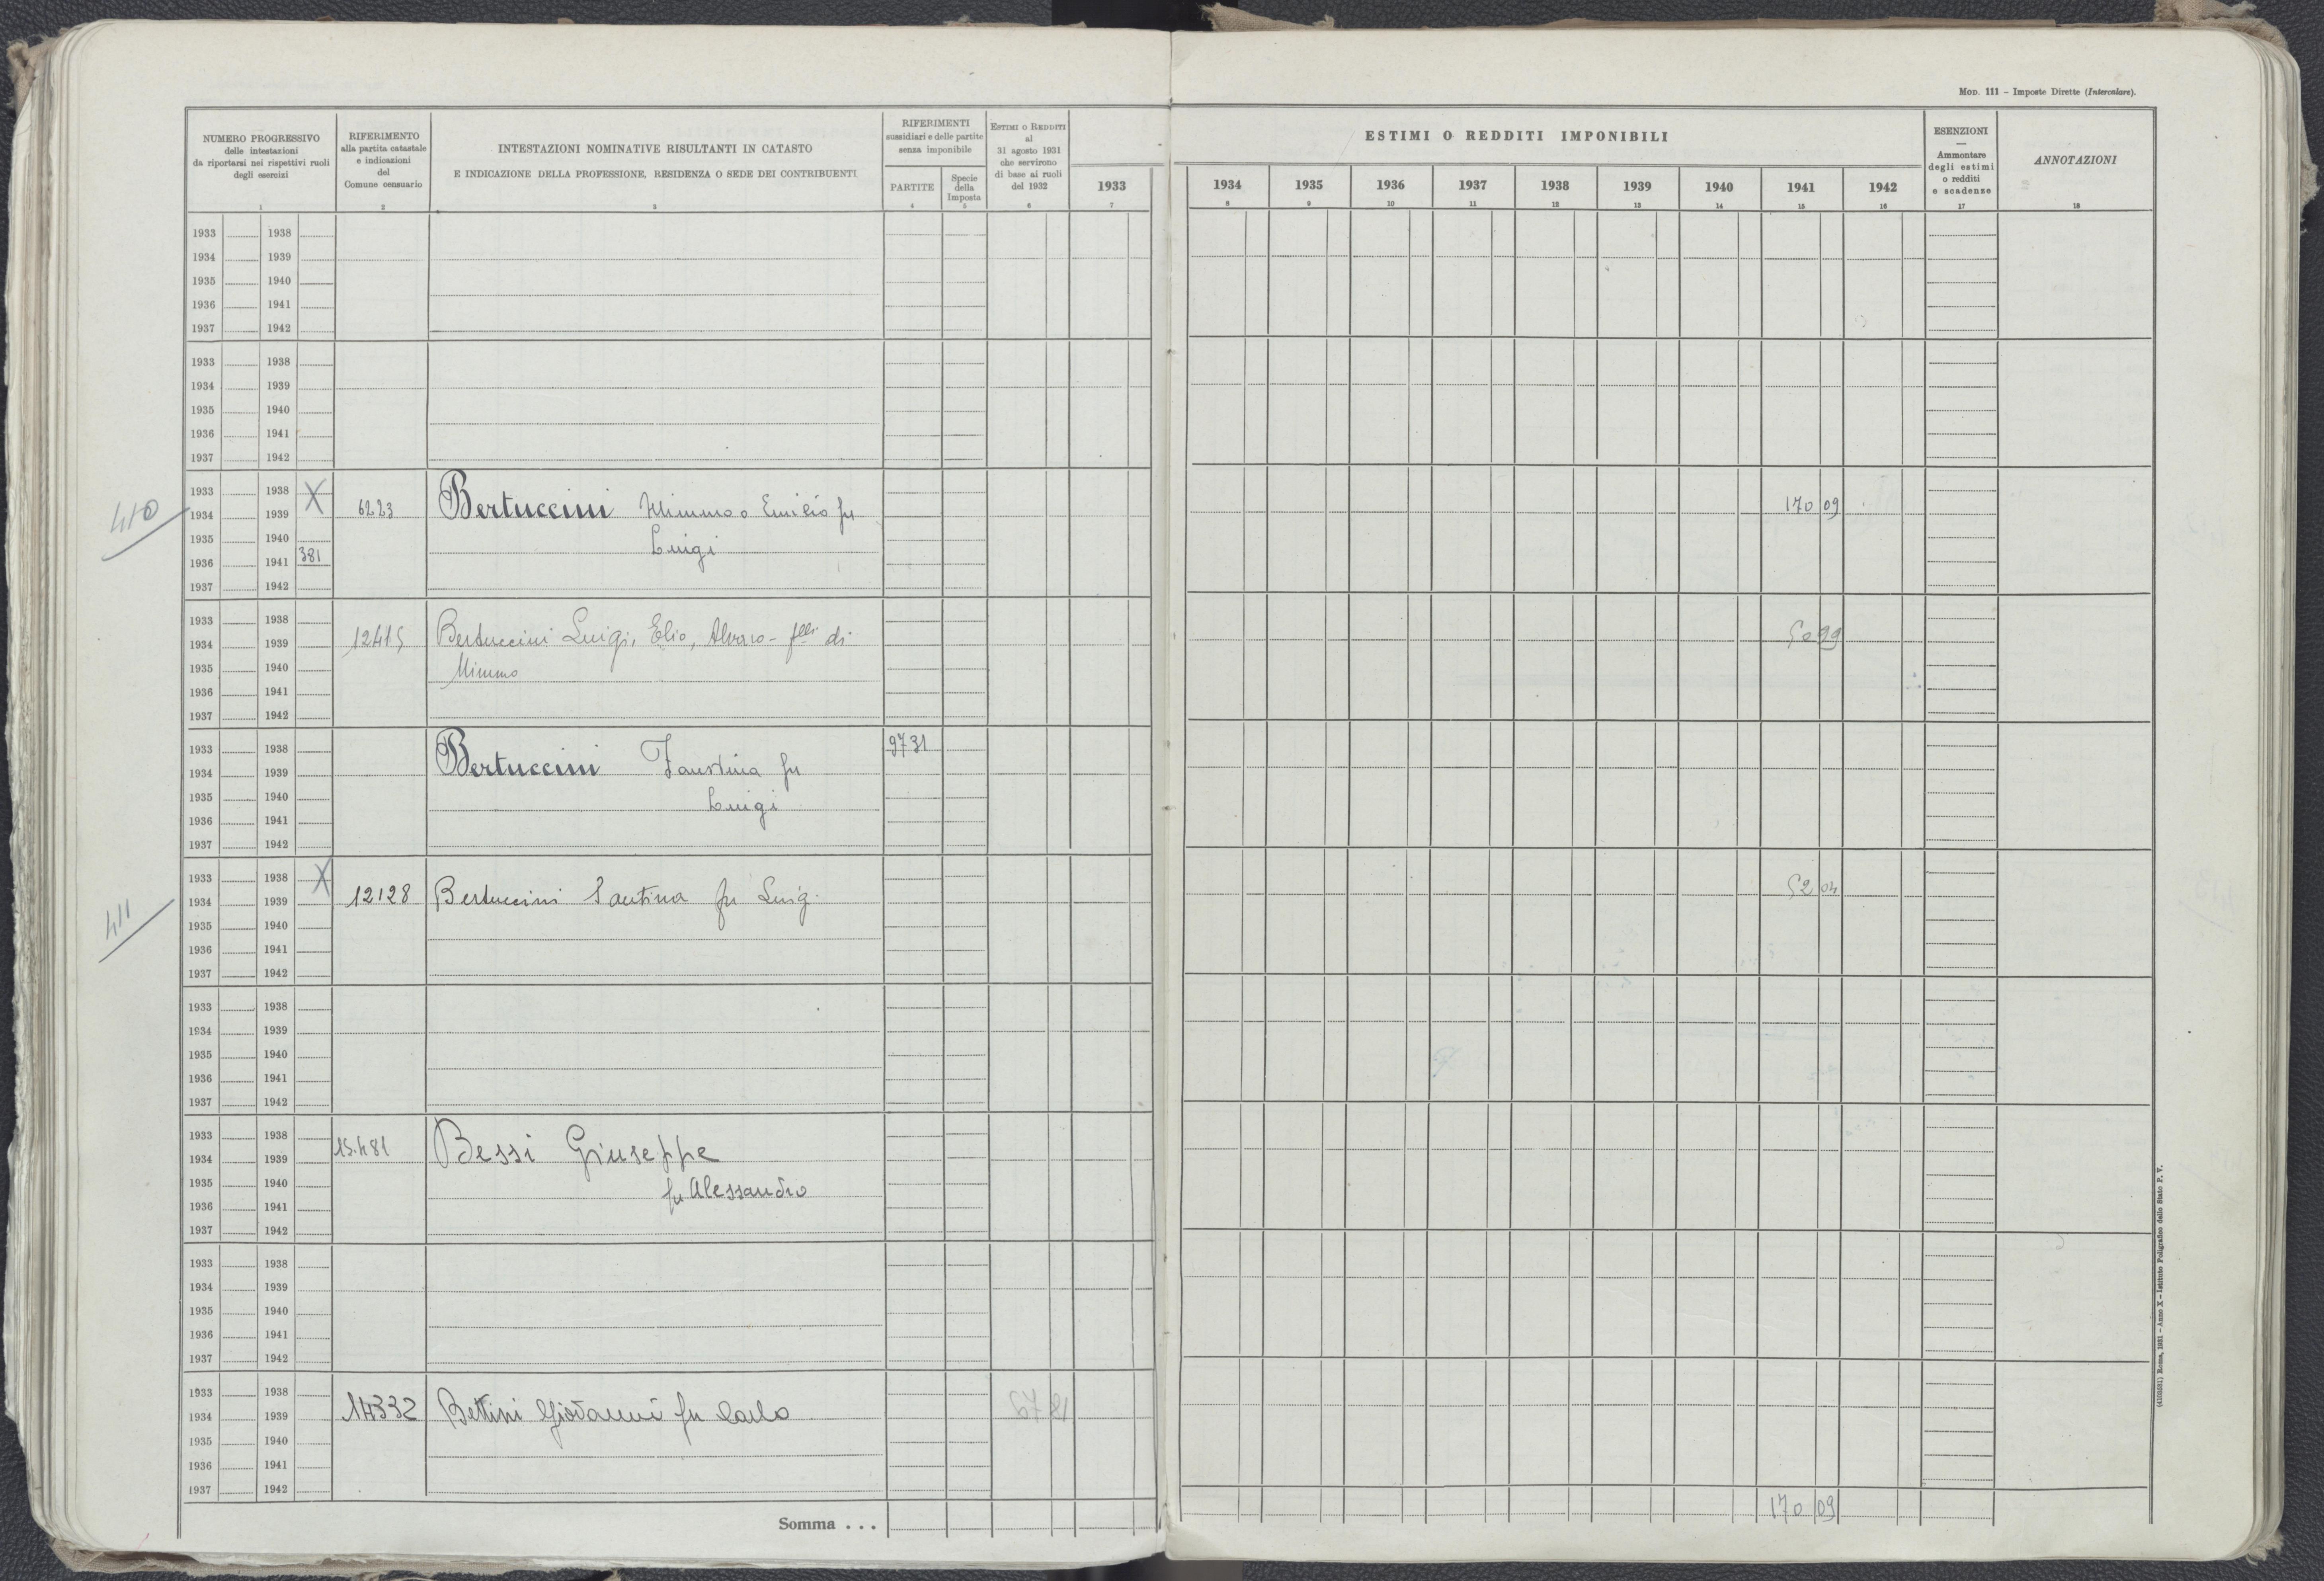 Mod. 111 – Imposte Dirette (Intercalare).
NUMERO PROGRESSIVO
delle intestazioni
da riportarsi nei rispettivi ruoli
degli esercizi
1
RIFERIMENTO
alla partita catastale
e indicazioni
del
Comune censuario
2
INTESTAZIONI NOMINATIVE RISULTANTI IN CATASTO
E INDICAZIONE DELLA PROFESSIONE, RESIDENZA O SEDE DEI CONTRIBUENTI
3
RIFERIMENTI
sussidiari e delle partite
senza imponibile
PARTITE
4
Specie
della
Imposta
5
Estimi o Redditi
al
31 agosto 1931
che servirono
di base ai ruoli
del 1932
6
1933
7
ESTIMI O REDDITI IMPONIBILI
1934 1935 1936 1937 1938 1939 1940 1941 1942
8 9 10 11 12 13 14 15 16
ESENZIONI
—
Ammontare
degli estimi
o redditi
e scadenze
17
ANNOTAZIONI
18
1933 1938
1934 1939
1935 1940
1936 1941
1937 1942
1933 1938
1934 1939
1935 1940
1936 1941
1937 1942
410
1933 1938 X
1934 1939 6223 Bertuccini Mimmo o Emilio fu 170 09
1935 1940 Luigi
1936 1941 381
1937 1942
1933 1938
1934 1939 12415 Bertuccini Luigi, Elio, Alvaro - flli di 50 99
1935 1940 Mimmo
1936 1941
1937 1942
1933 1938 9731
1934 1939 Bertuccini Faustina fu
1935 1940 Luigi
1936 1941
1937 1942
411
1933 1938 X
1934 1939 12128 Bertuccini Santina fu Luigi 52 04
1935 1940
1936 1941
1937 1942
1933 1938
1934 1939
1935 1940
1936 1941
1937 1942
1933 1938 15.481 Bessi Giuseppe
1934 1939
1935 1940 fu Alessandro
1936 1941
1937 1942
1933 1938
1934 1939
1935 1940
1936 1941
1937 1942
1933 1938
1934 1939 14332 Bettini Giovanni fu Carlo 67 21
1935 1940
1936 1941
1937 1942
Somma . . . 170 09